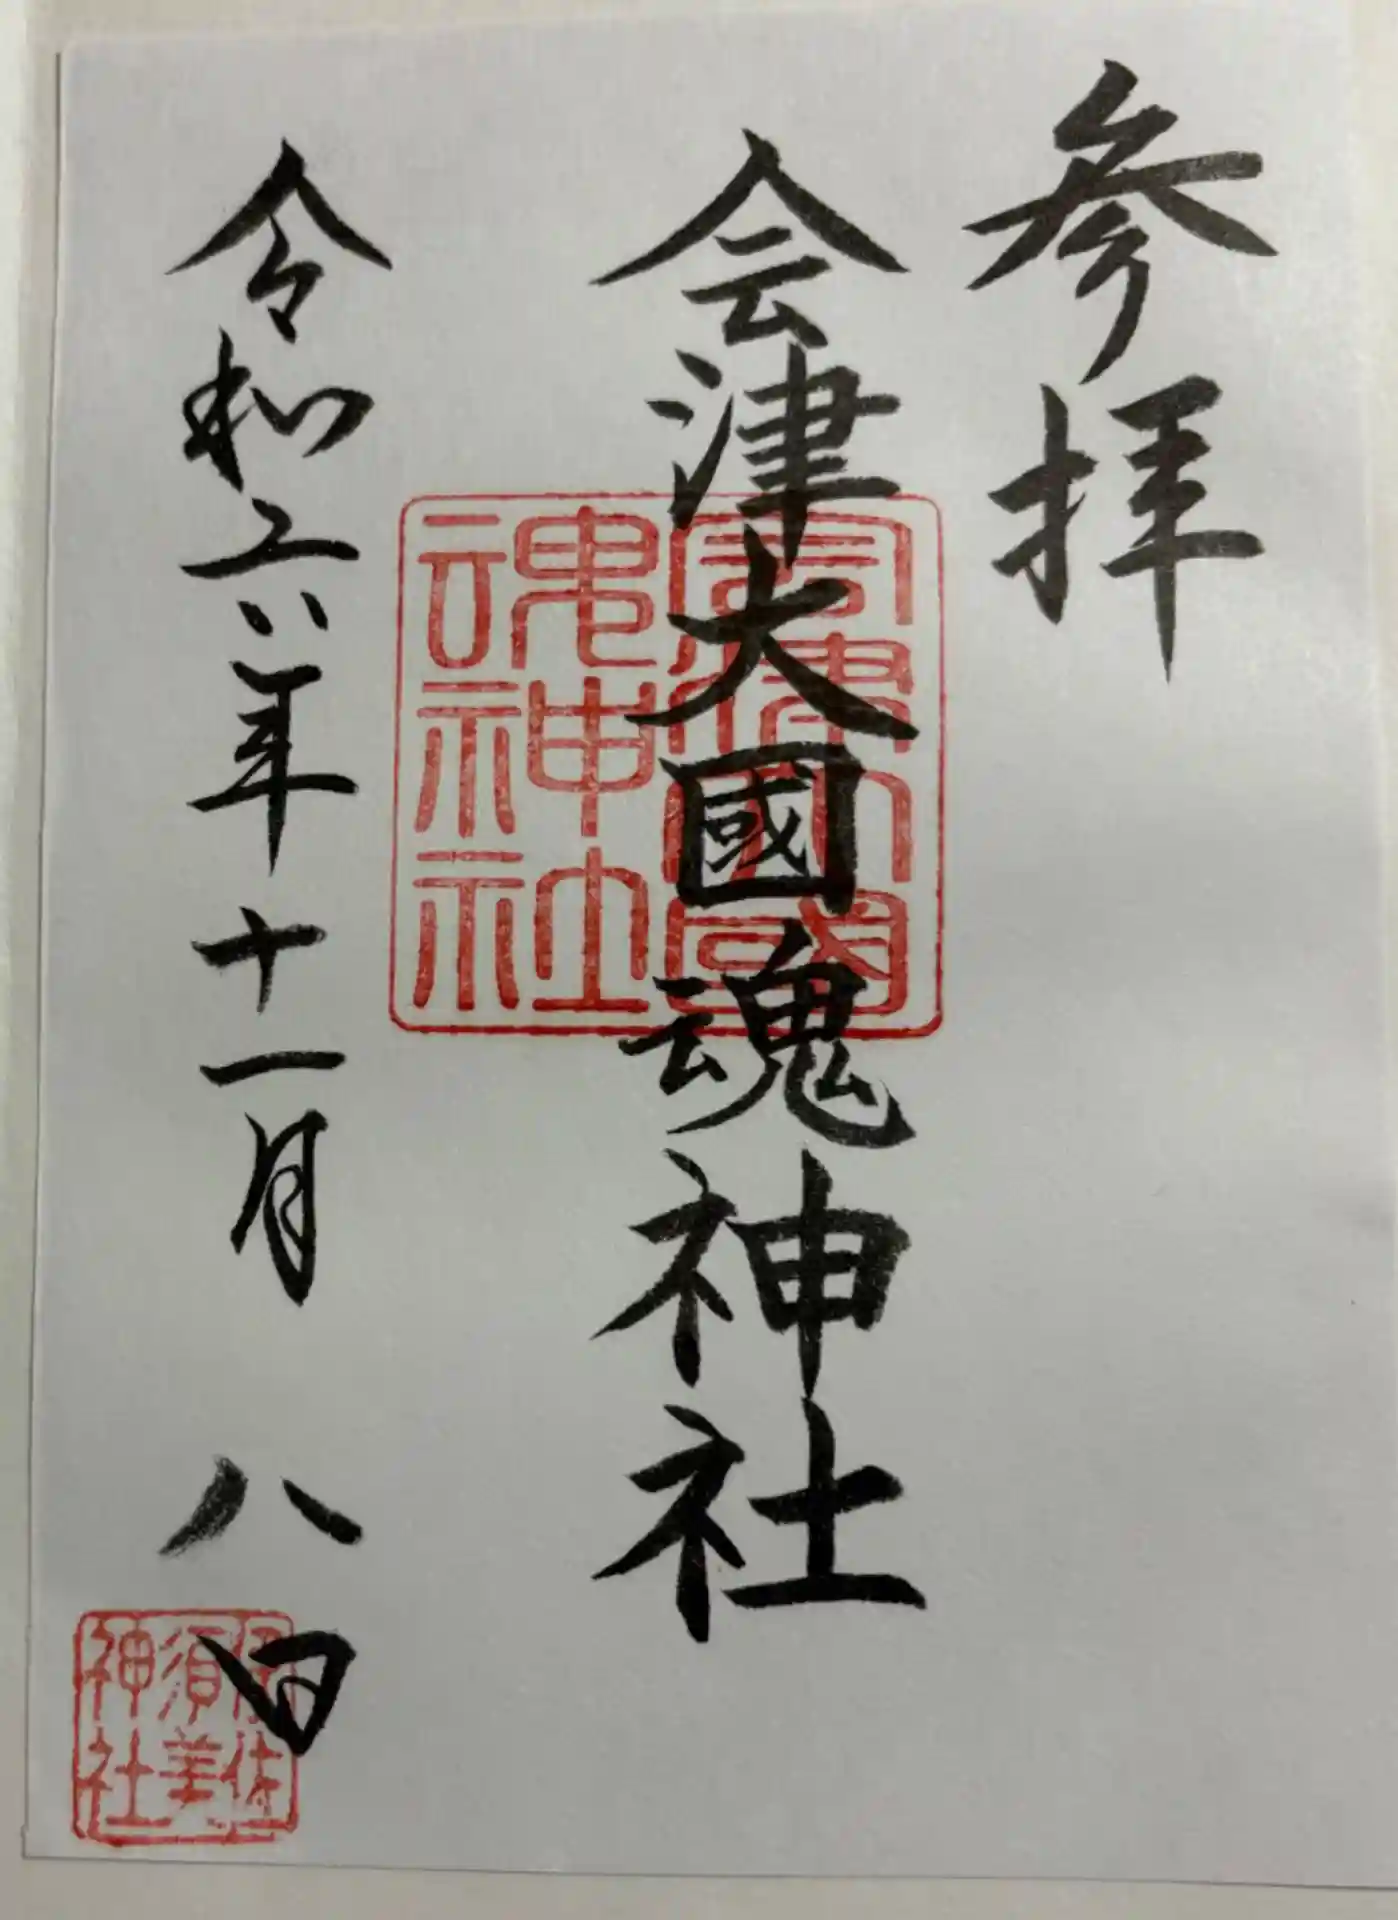 参拝
会津大國魂神社
會津大國
魂神社
令和六年十一月八日
伊佐
須美
神社